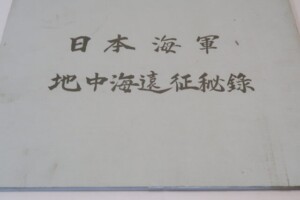 日本海軍
地中海遠征秘録